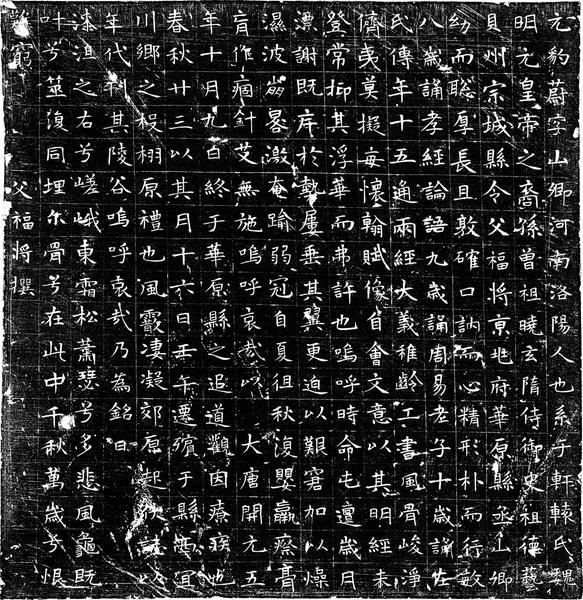 元豹蔚字山卿河南洛陽人也系于軒轅氏魏
明元皇帝之裔孫曾祖曉玄隋侍御史祖德藝
貝州宗城縣令父福將京兆府華原縣丞山卿
幼而聡厚長且敦確口訥而心精形朴而行敏
八歲誦孝經論語九歲誦周易老子十歲誦佐
氏傳年十五通兩經大義稚齡工書風骨峻淨
儕夷莫擬每懷翰賦像自會文意以其明經未
登常抑其浮華而弗許也嗚呼時命屯邅歲月
漂謝既序於塾屢垂其翼更迫以艱窘加以燥
濕波崩晷激奄踰弱冠自夏徂秋復嬰羸瘵膏
肓作痼針艾無施嗚呼哀哉以 大唐開元五
年十月九日終于華原縣之追道觀因療疾也
春秋廿三以其月十六日壬午遷殯于縣西宜
川鄉之棫栩原禮也風霰淒凝郊原起 誌以
年代刊其陵谷嗚呼哀哉乃為銘曰
漆沮之右兮嵯峨東霜松蕭瑟兮多悲風龜既
叶兮筮復同埋尔骨兮在此中千秋萬歲兮恨
難窮 父福將撰